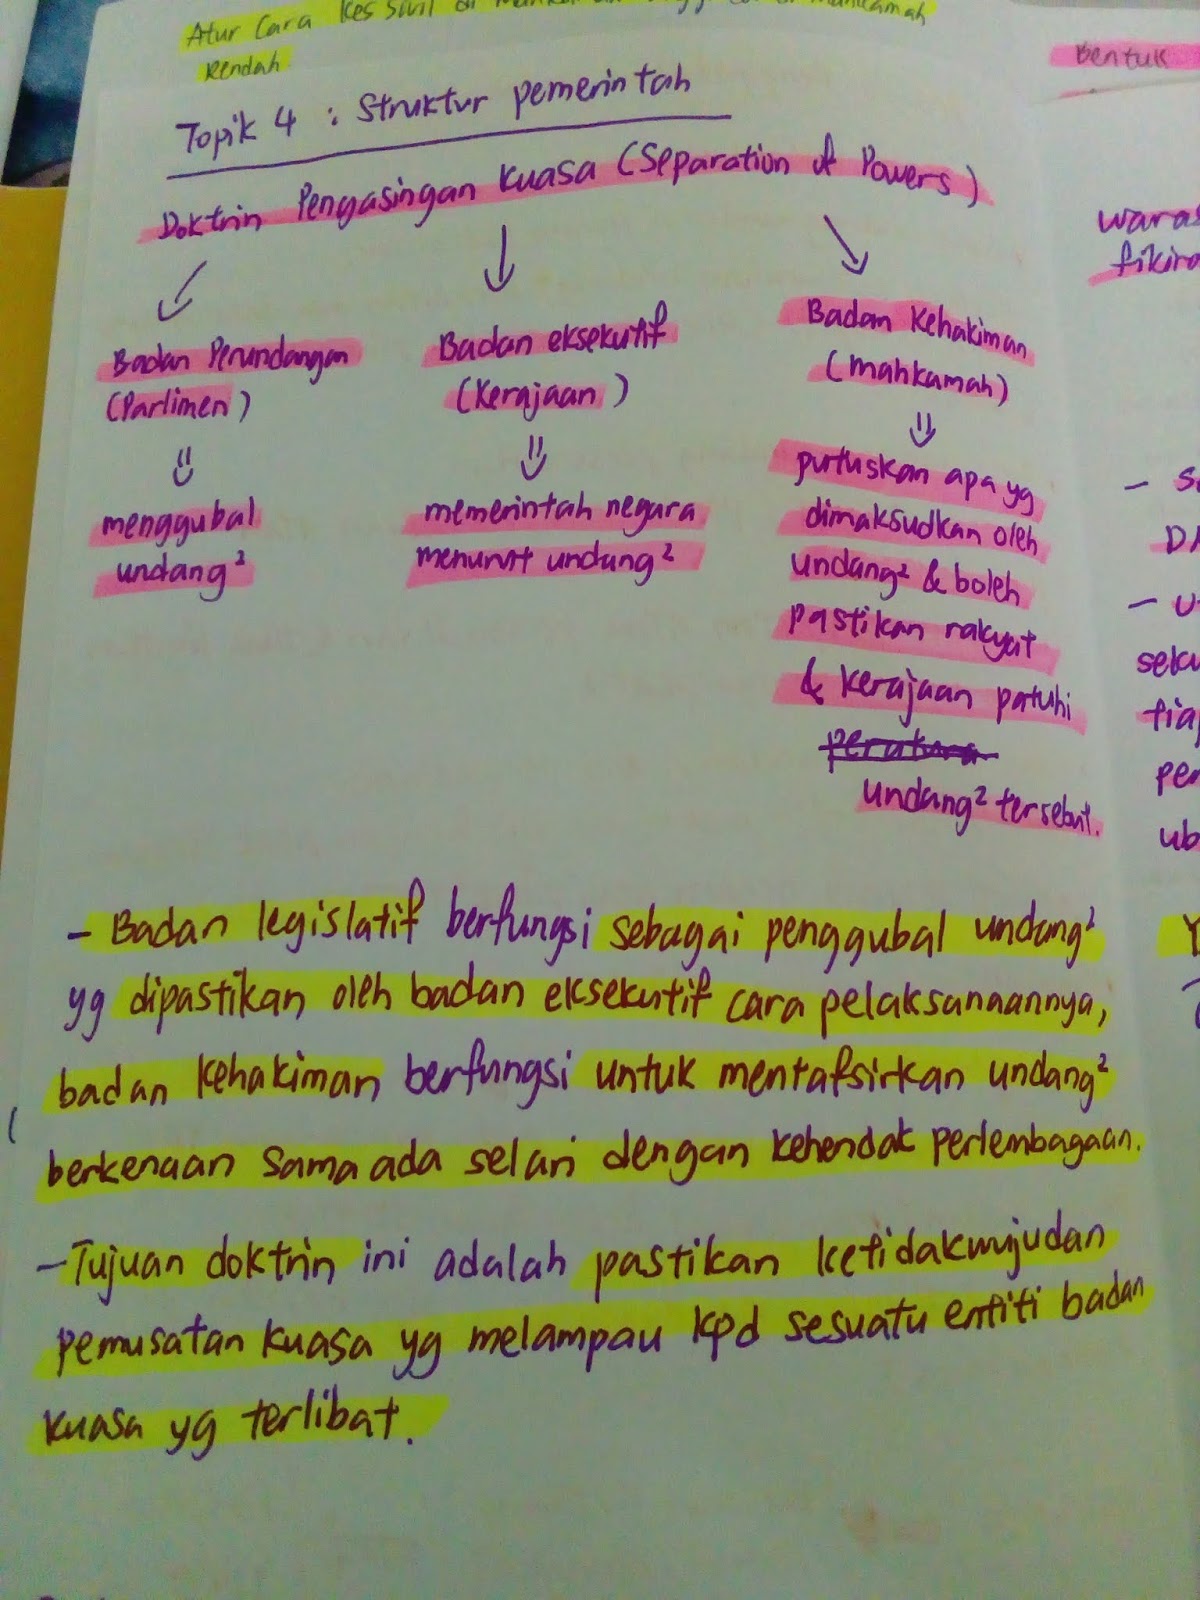 Atur Cara Kes Sivil di
Rendah
Bentuk
Topik 4 : Struktur pemerintah
Doktrin Pengasingan Kuasa (Separation of Powers)
Badan Perundangan
(Parlimen)
menggubal
undang²
Badan eksekutif
(Kerajaan)
memerintah negara
menurut undang²
Badan Kehakiman
(mahkamah)
putuskan apa yg
dimaksudkan oleh
undang² & boleh
pastikan rakyat
& kerajaan patuhi
undang² tersebut.
- Badan legislatif berfungsi sebagai penggubal undang²
yg dipastikan oleh badan eksekutif cara pelaksanaannya,
badan kehakiman berfungsi untuk mentafsirkan undang²
berkenaan sama ada selari dengan kehendak perlembagaan.
- Tujuan doktrin ini adalah pastikan ketidakwujudan
pemusatan kuasa yg melampau kpd sesuatu entiti badan
kuasa yg terlibat.